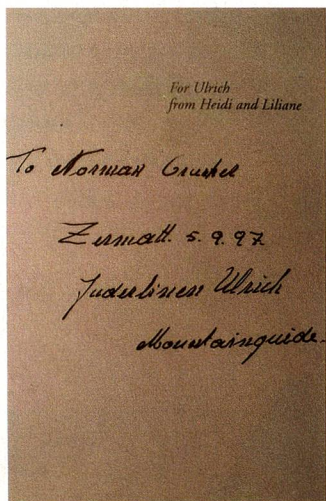 For Ulrich
from Heidi and Liliane
To Norman Croucher
Zermatt. 5.9.97
Inderbinen Ulrich
Mountainguide.